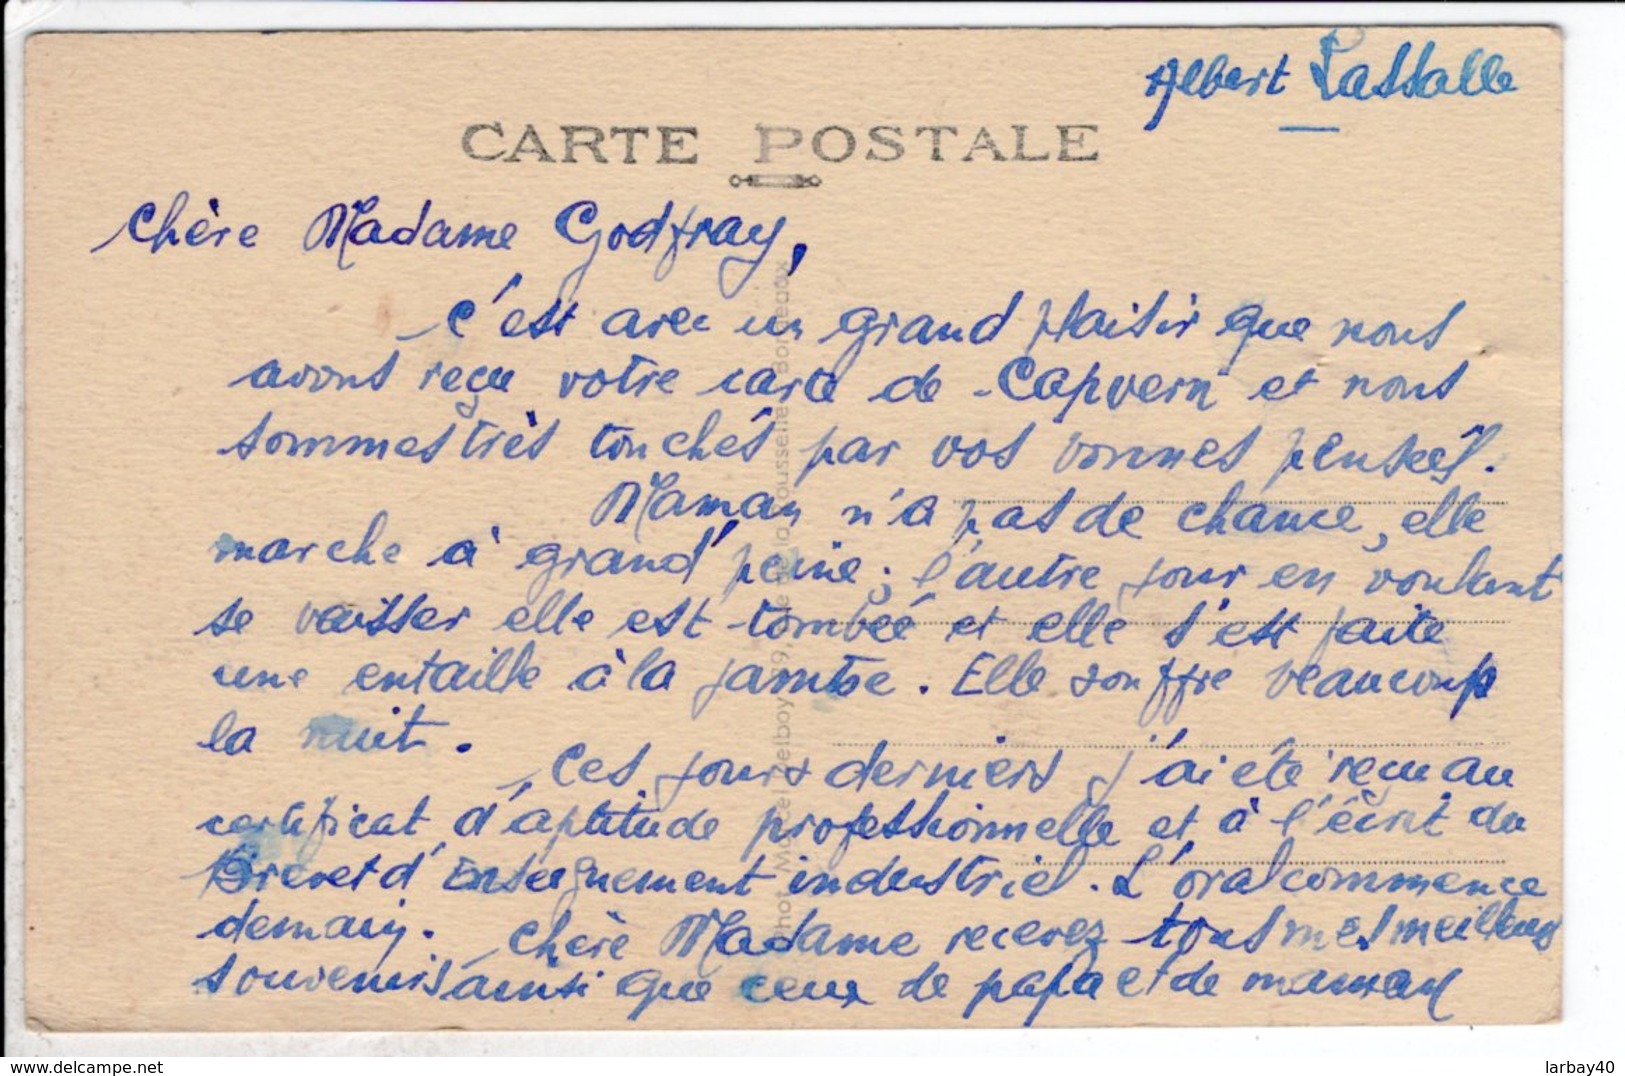 Albert Lassalle
CARTE POSTALE
Chère Madame Godfray,
C'est avec un grand plaisir que nous
avons reçu votre carte de Capvern et nous
sommes très touchés par vos bonnes pensées.
Maman n'a pas de chance, elle
marche à grand'peine ; l'autre jour en voulant
se baisser elle est tombée et elle s'est faite
une entaille à la jambe. Elle souffre beaucoup
la nuit.
Ces jours derniers j'ai été reçu au
certificat d'aptitude professionnelle et à l'écrit du
Brevet d'Enseignement industriel. L'oral commence
demain.
Chère Madame recevez tous mes meilleurs
souvenirs ainsi que ceux de papa et de maman
Phot. Marcel Delboy
Bordeaux
delcampe.net
larbay40